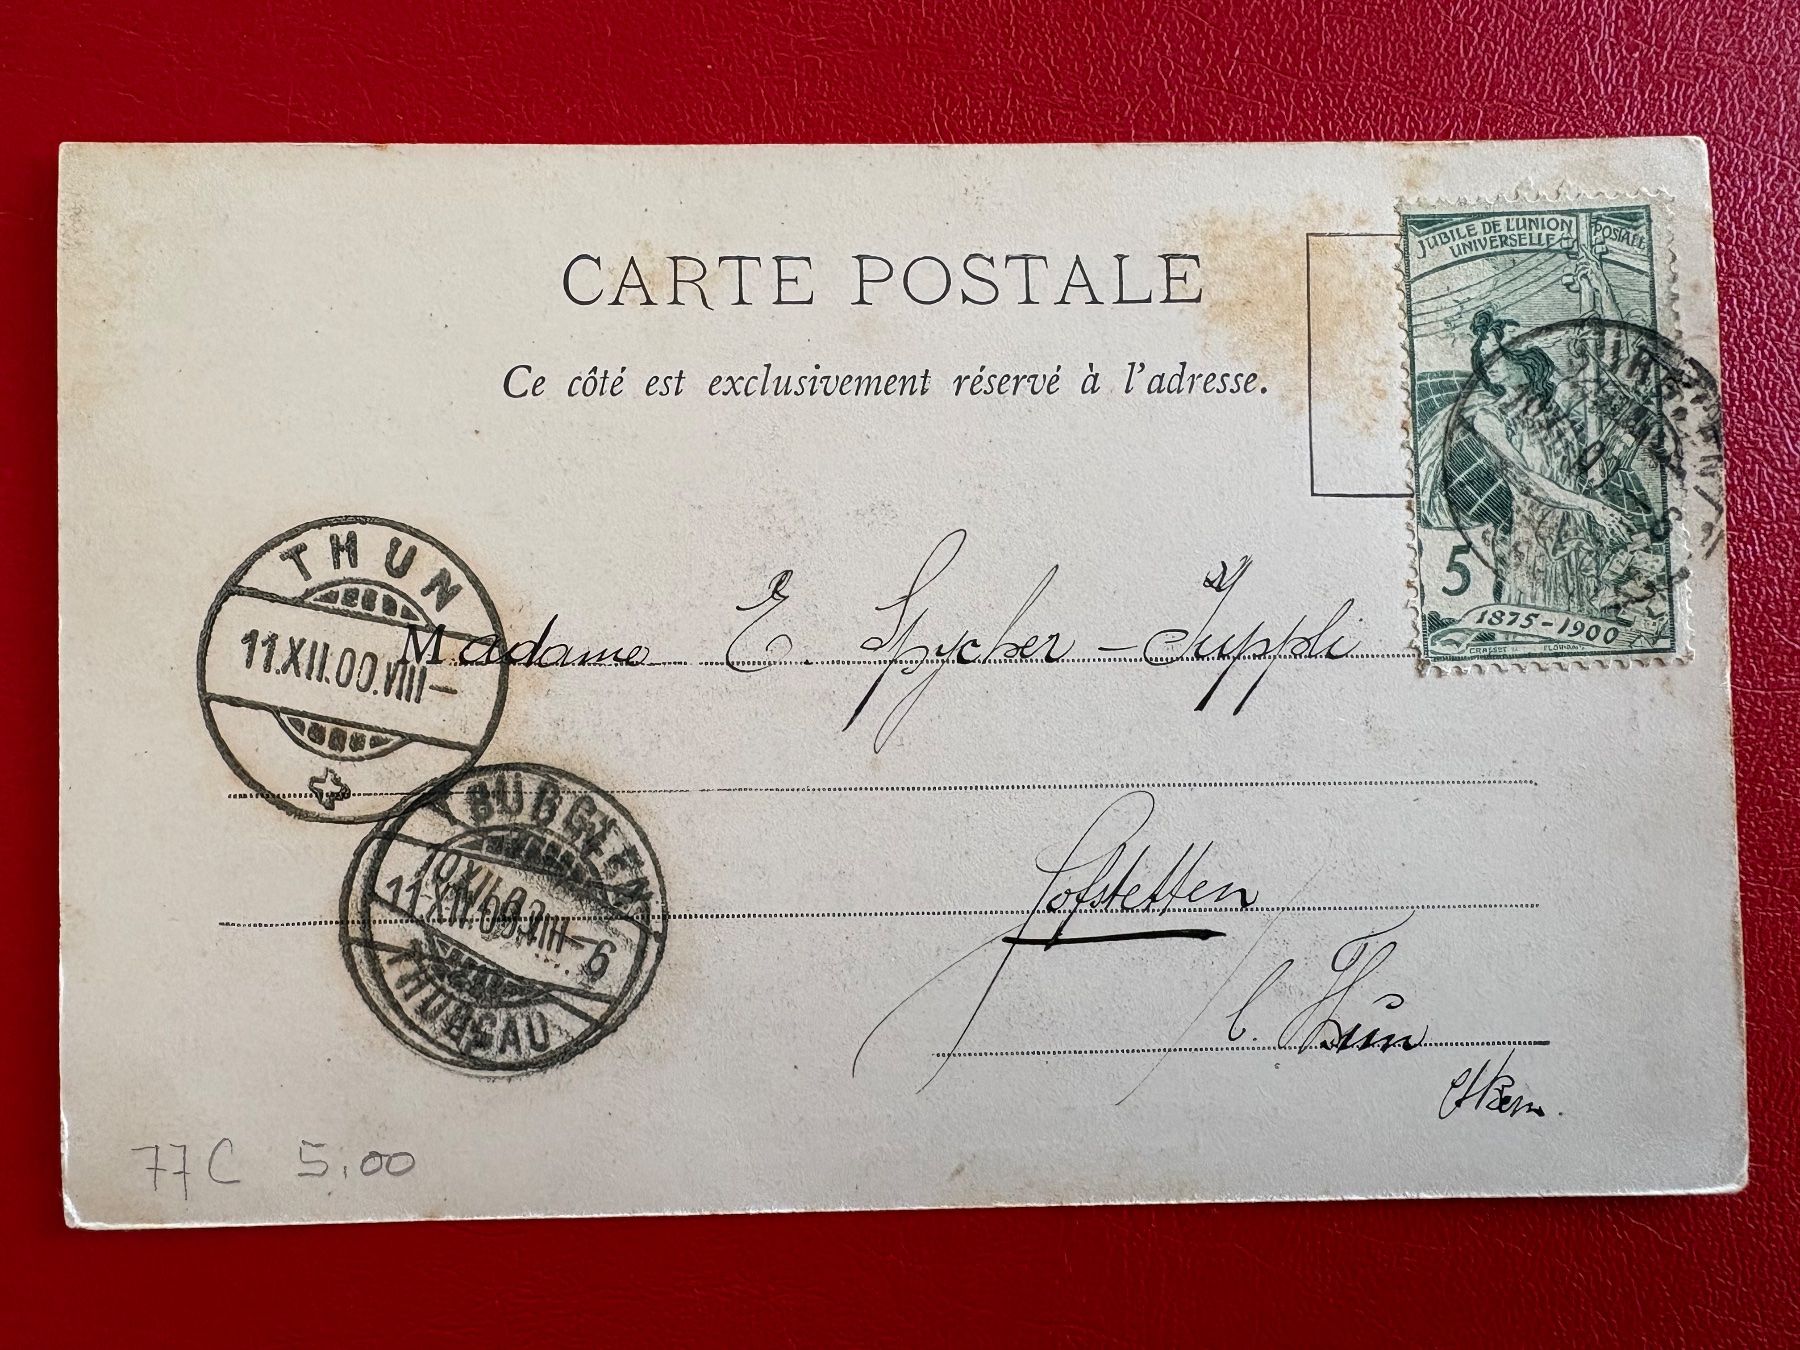 CARTE POSTALE
Ce côté est exclusivement réservé à l'adresse.
JUBILE DE L'UNION POSTALE
UNIVERSELLE
5
1875-1900
GRASSET
THUN
11.XII.00.VIII-
Madame E. Spycher-Suppli
Hofstetten
b. Thun
Bern.
10 XII 00
11.XII.00.VIII-6
77C 5.00